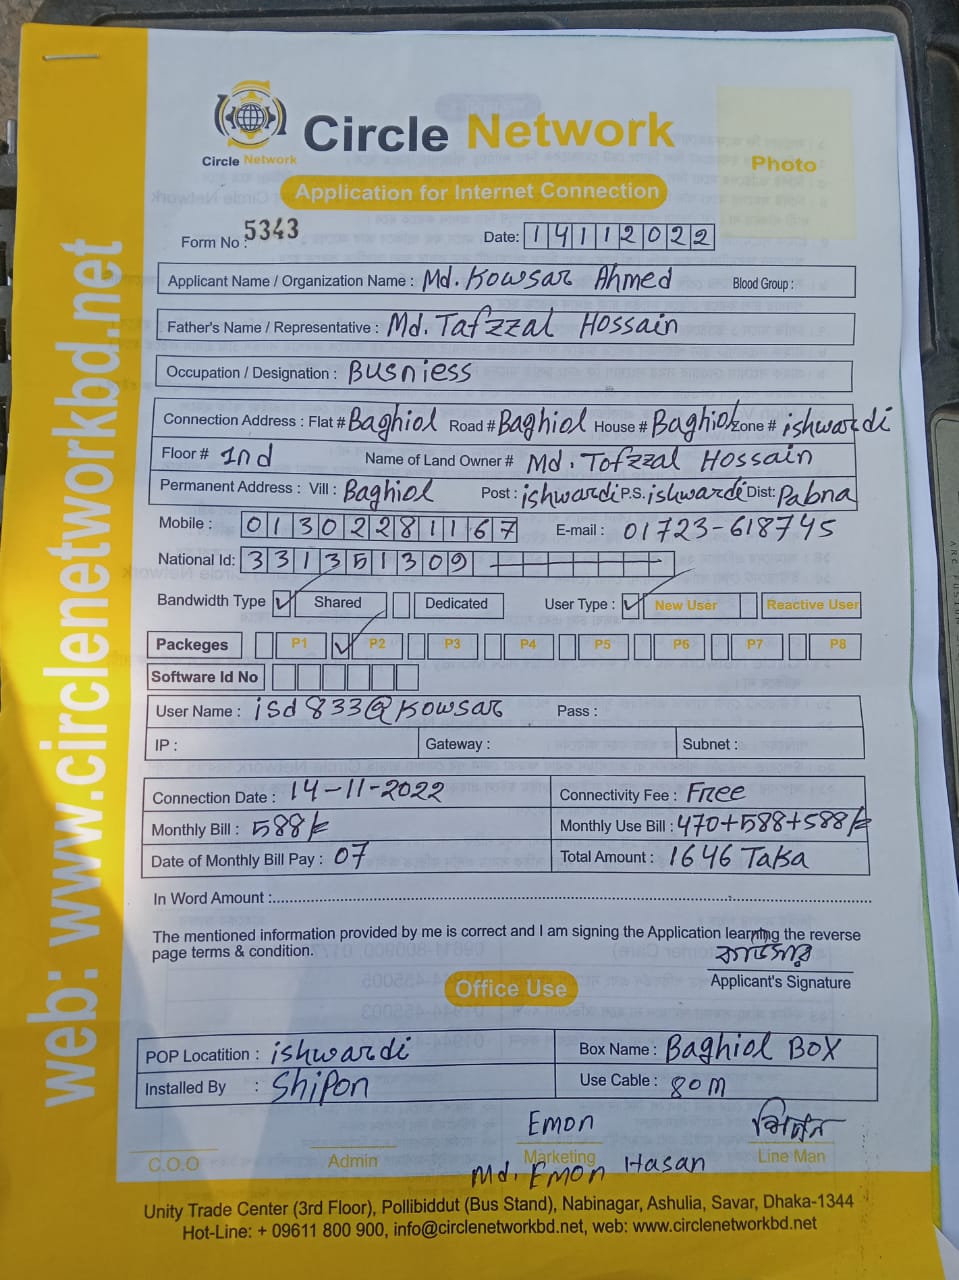 Circle Network
Circle Network
Photo
Application for Internet Connection
Form No : 5343
Date: 14112022
Applicant Name / Organization Name : Md. Kowsar Ahmed Blood Group :
Father's Name / Representative : Md. Tafzzal Hossain
Occupation / Designation : Busniess
Connection Address : Flat # Baghiol Road # Baghiol House # Baghiol Zone # ishwardi
Floor # 1nd Name of Land Owner # Md. Tofzzal Hossain
Permanent Address : Vill : Baghiol Post : ishwardi P.S. ishwardi Dist: Pabna
Mobile : 01302281167 E-mail : 01723-618745
National Id: 331351309
Bandwidth Type ✓ Shared Dedicated User Type : ✓ New User Reactive User
Packeges P1 ✓ P2 P3 P4 P5 P6 P7 P8
Software Id No
User Name : isd833@Kowsar Pass :
IP : Gateway : Subnet :
Connection Date : 14-11-2022 Connectivity Fee : Free
Monthly Bill : 588/= Monthly Use Bill : 470+588+588/=
Date of Monthly Bill Pay : 07 Total Amount : 1646 Taka
In Word Amount :
The mentioned information provided by me is correct and I am signing the Application learning the reverse
page terms & condition.
কাওসার
Applicant's Signature
Office Use
POP Locatition : ishwardi Box Name : Baghiol BOX
Installed By : Shipon Use Cable : 80M
Emon
C.O.O Admin Marketing Line Man
Md. Emon Hasan
Unity Trade Center (3rd Floor), Pollibiddut (Bus Stand), Nabinagar, Ashulia, Savar, Dhaka-1344
Hot-Line: + 09611 800 900, info@circlenetworkbd.net, web: www.circlenetworkbd.net
web: www.circlenetworkbd.net